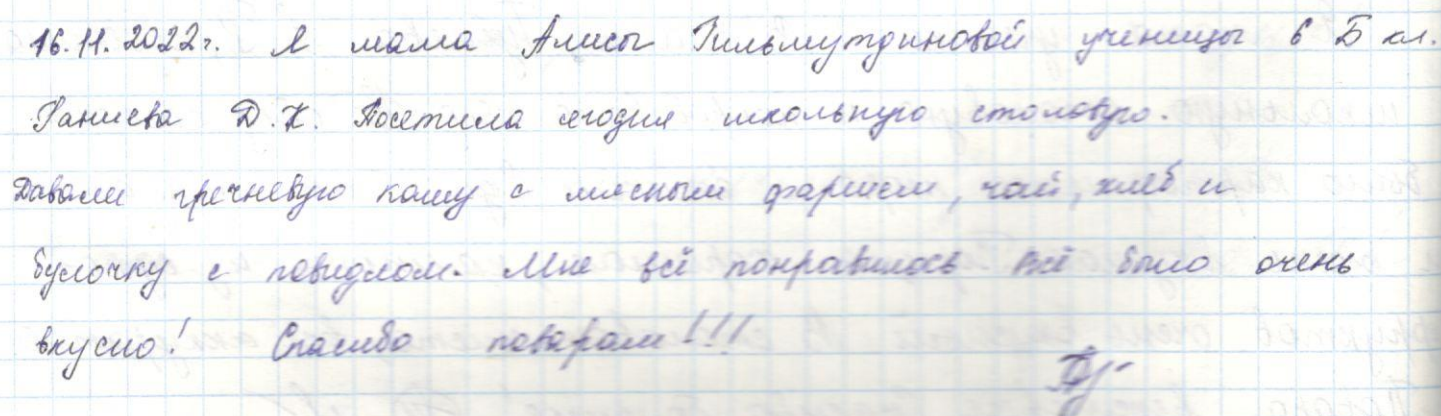 16.11.2022г. Я мама Алисы Гильмутдиновой ученицы 6 Б кл.
Ганиева Д.К. Посетила сегодня школьную столовую.
Давали гречневую кашу с мясным фаршем, чай, хлеб и
булочку с повидлом. Мне всё понравилось всё было очень
вкусно! Спасибо поварам!!!